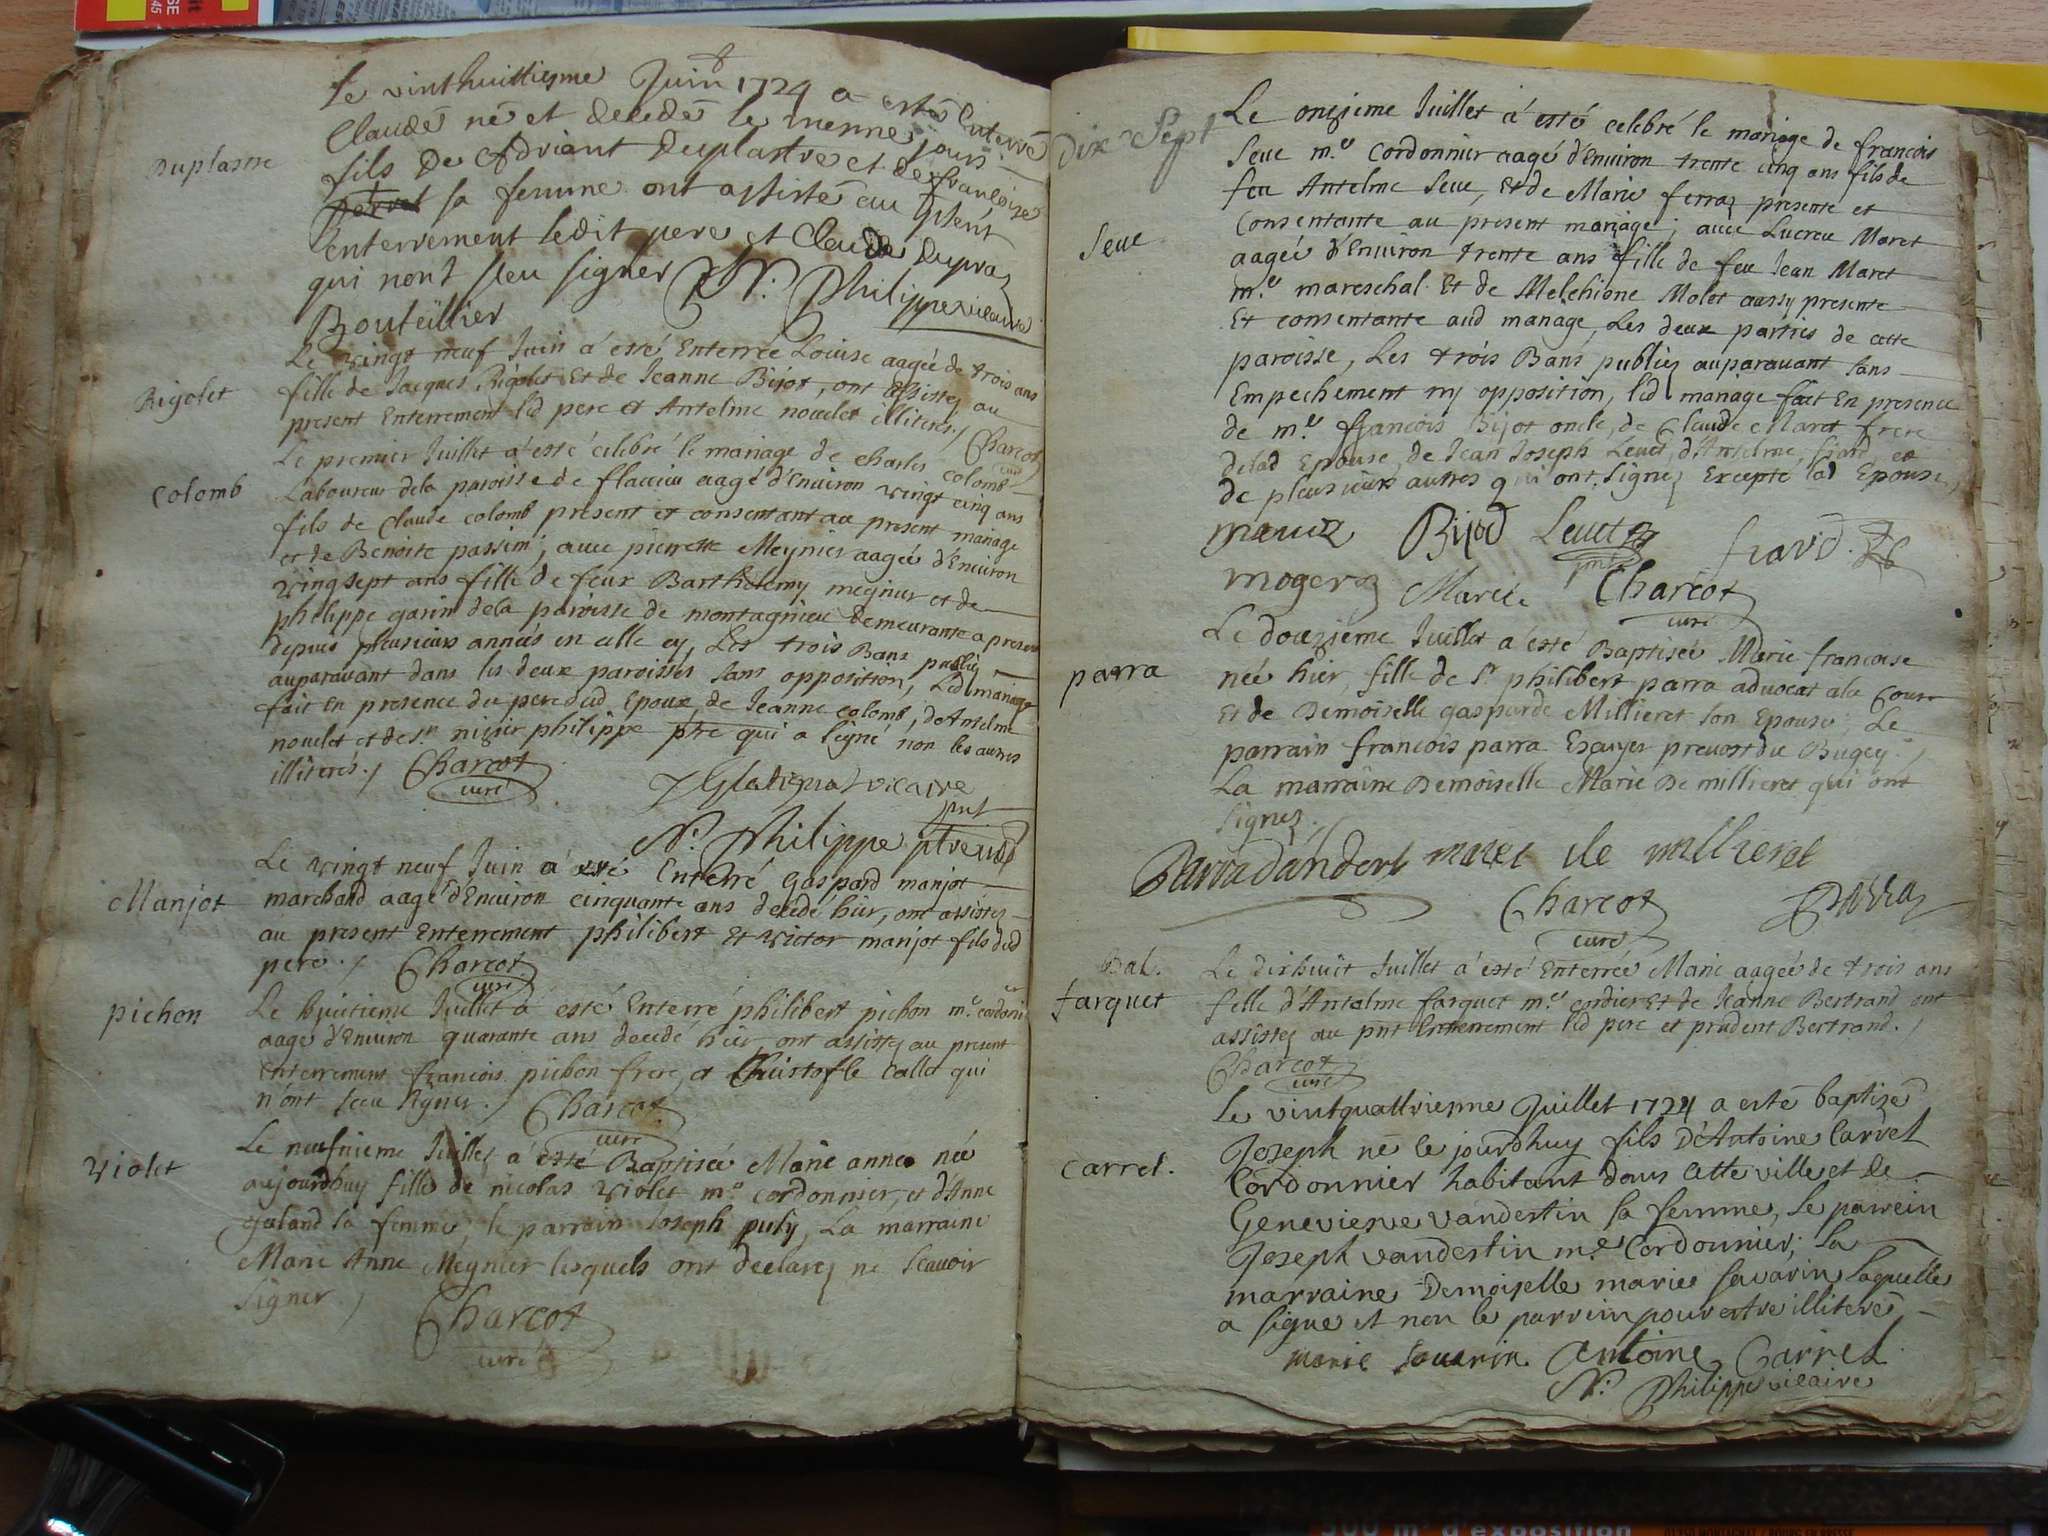 Duplastre
Le vinthuittiesme Juin 1724 a esté Enterré
Claude né et decedé le mesme jour
fils de Adriant Duplastre et de francoise
sa femme ont assisté au pnt
enterrement ledit pere et Claude Dupraz
qui nont sceu signer N. Philippe vicaire
Bouteillier
Rigolet
Le vingt neuf Juin a esté Enterrée Louise aagée de trois ans
fille de Jacques Rigolet Et de Jeanne Bijot, ont assistez au
present Enterrement led pere et Antelme nouelet illiterés./ Charcot
curé
Colomb
Le premier Juillet a esté célebré le mariage de charles colomb
Laboureur dela paroisse de flaccieu aagé d'Environ vingt cinq ans
fils de Claude colomb present et consentant au present mariage
et de Benoite passim; avec pierrette Meynier aagée d'Environ
vingsept ans fille de feux Barthelemy megnier et de
philippe garin dela paroisse de montagnieu demeurante a present
depuis plusieurs années en celle cy, Les trois Bans publiez
auparavant dans les deux paroisses sans opposition, Led mariage
fait En presence du pere dud Epoux de Jeanne colomb, d'Antelme
nouelet et de sr. nizier philippe ptre qui a signé non les autres
illiterés./ Charcot
curé
vicaire
pnt
N. Philippe ptre vic
Manjot
Le vingt neuf Juin a esté Enterré Gaspard manjot
marchand aagé d'Environ cinquante ans decedé hier, ont assistez
au present Enterrement philibert Et victor manjot fils dud
pere./ Charcot
curé
pichon
Le huitieme Juillet a esté Enterré philibert pichon me. cordonier
aagé d'Environ quarante ans decedé hier, ont assistez au present
enterrement francois pichon frere, et Christofle callet qui
n'ont sceu signer./ Charcot
curé
violet
Le neufvieme Juillet a esté Baptisée Marie anne née
aujourdhuy fille de nicolas violet me. cordonnier, et d'Anne
galand sa femme, le parrain Joseph puly, La marraine
Marie Anne Meynier lesquels ont declarez ne scauoir
signer./
Charcot
curé
Dix Sept
Seve
Le onzieme Juillet a esté celebré le mariage de francois
Seve me. cordonnier aagé d'Environ trente cinq ans fils de
feu Antelme Seve, Et de Marie ferraz presente et
consentante au present mariage; avec Lucrece Maret
aagée d'Environ trente ans fille de feu Jean Maret
me. mareschal. Et de Melchionne Molet aussy presente
Et consentante aud mariage, Les deux parties de cette
paroisse, Les trois Bans publiez auparavant sans
Empechement ny opposition, led mariage fait En presence
de me. francois Bijot oncle, de Claude Maret frere
delad Epouse, de Jean Joseph Leuet, d'Antelme fiard, et
de plusieurs autres qui ont signez Excepté lad Epouse,
Bijod Leuet
pnt
mogeraz Maret Charcot
curé
parra
Le douzieme Juillet a esté Baptisée Marie francoise
née hier, fille de Sr. philibert parra advocat ala Cour
Et de Demoiselle gasparde Millieret son Epouse; Le
parrain francois parra Escuyer prevost du Bugey./
La marraine Demoiselle Marie De millieret qui ont
signez./
Parradandert mariet de millieret
Charcot Parra
curé
Bal.
farquet
Le dixhuit Juillet a esté Enterrée Marie aagée de trois ans
fille d'Antelme farquet me. cordier Et de Jeanne Bertrand ont
assistez au pnt Enterrement led pere et prudent Bertrand./
Charcot
curé
Carret.
Le vintquattriesme Juillet 1724 a esté baptisé
Joseph né le jourdhuy fils D'Antoine Carret
Cordonnier habitant dans cette ville et de
Genevieve vandestin sa femme, le parrein
Joseph vandestin me. Cordonnier, la
marraine Demoiselle marie savarin laquelle
a signé et non le parrein pour estre illiteré
marie sauarin Antoine Carret
N. Philippe vicaire